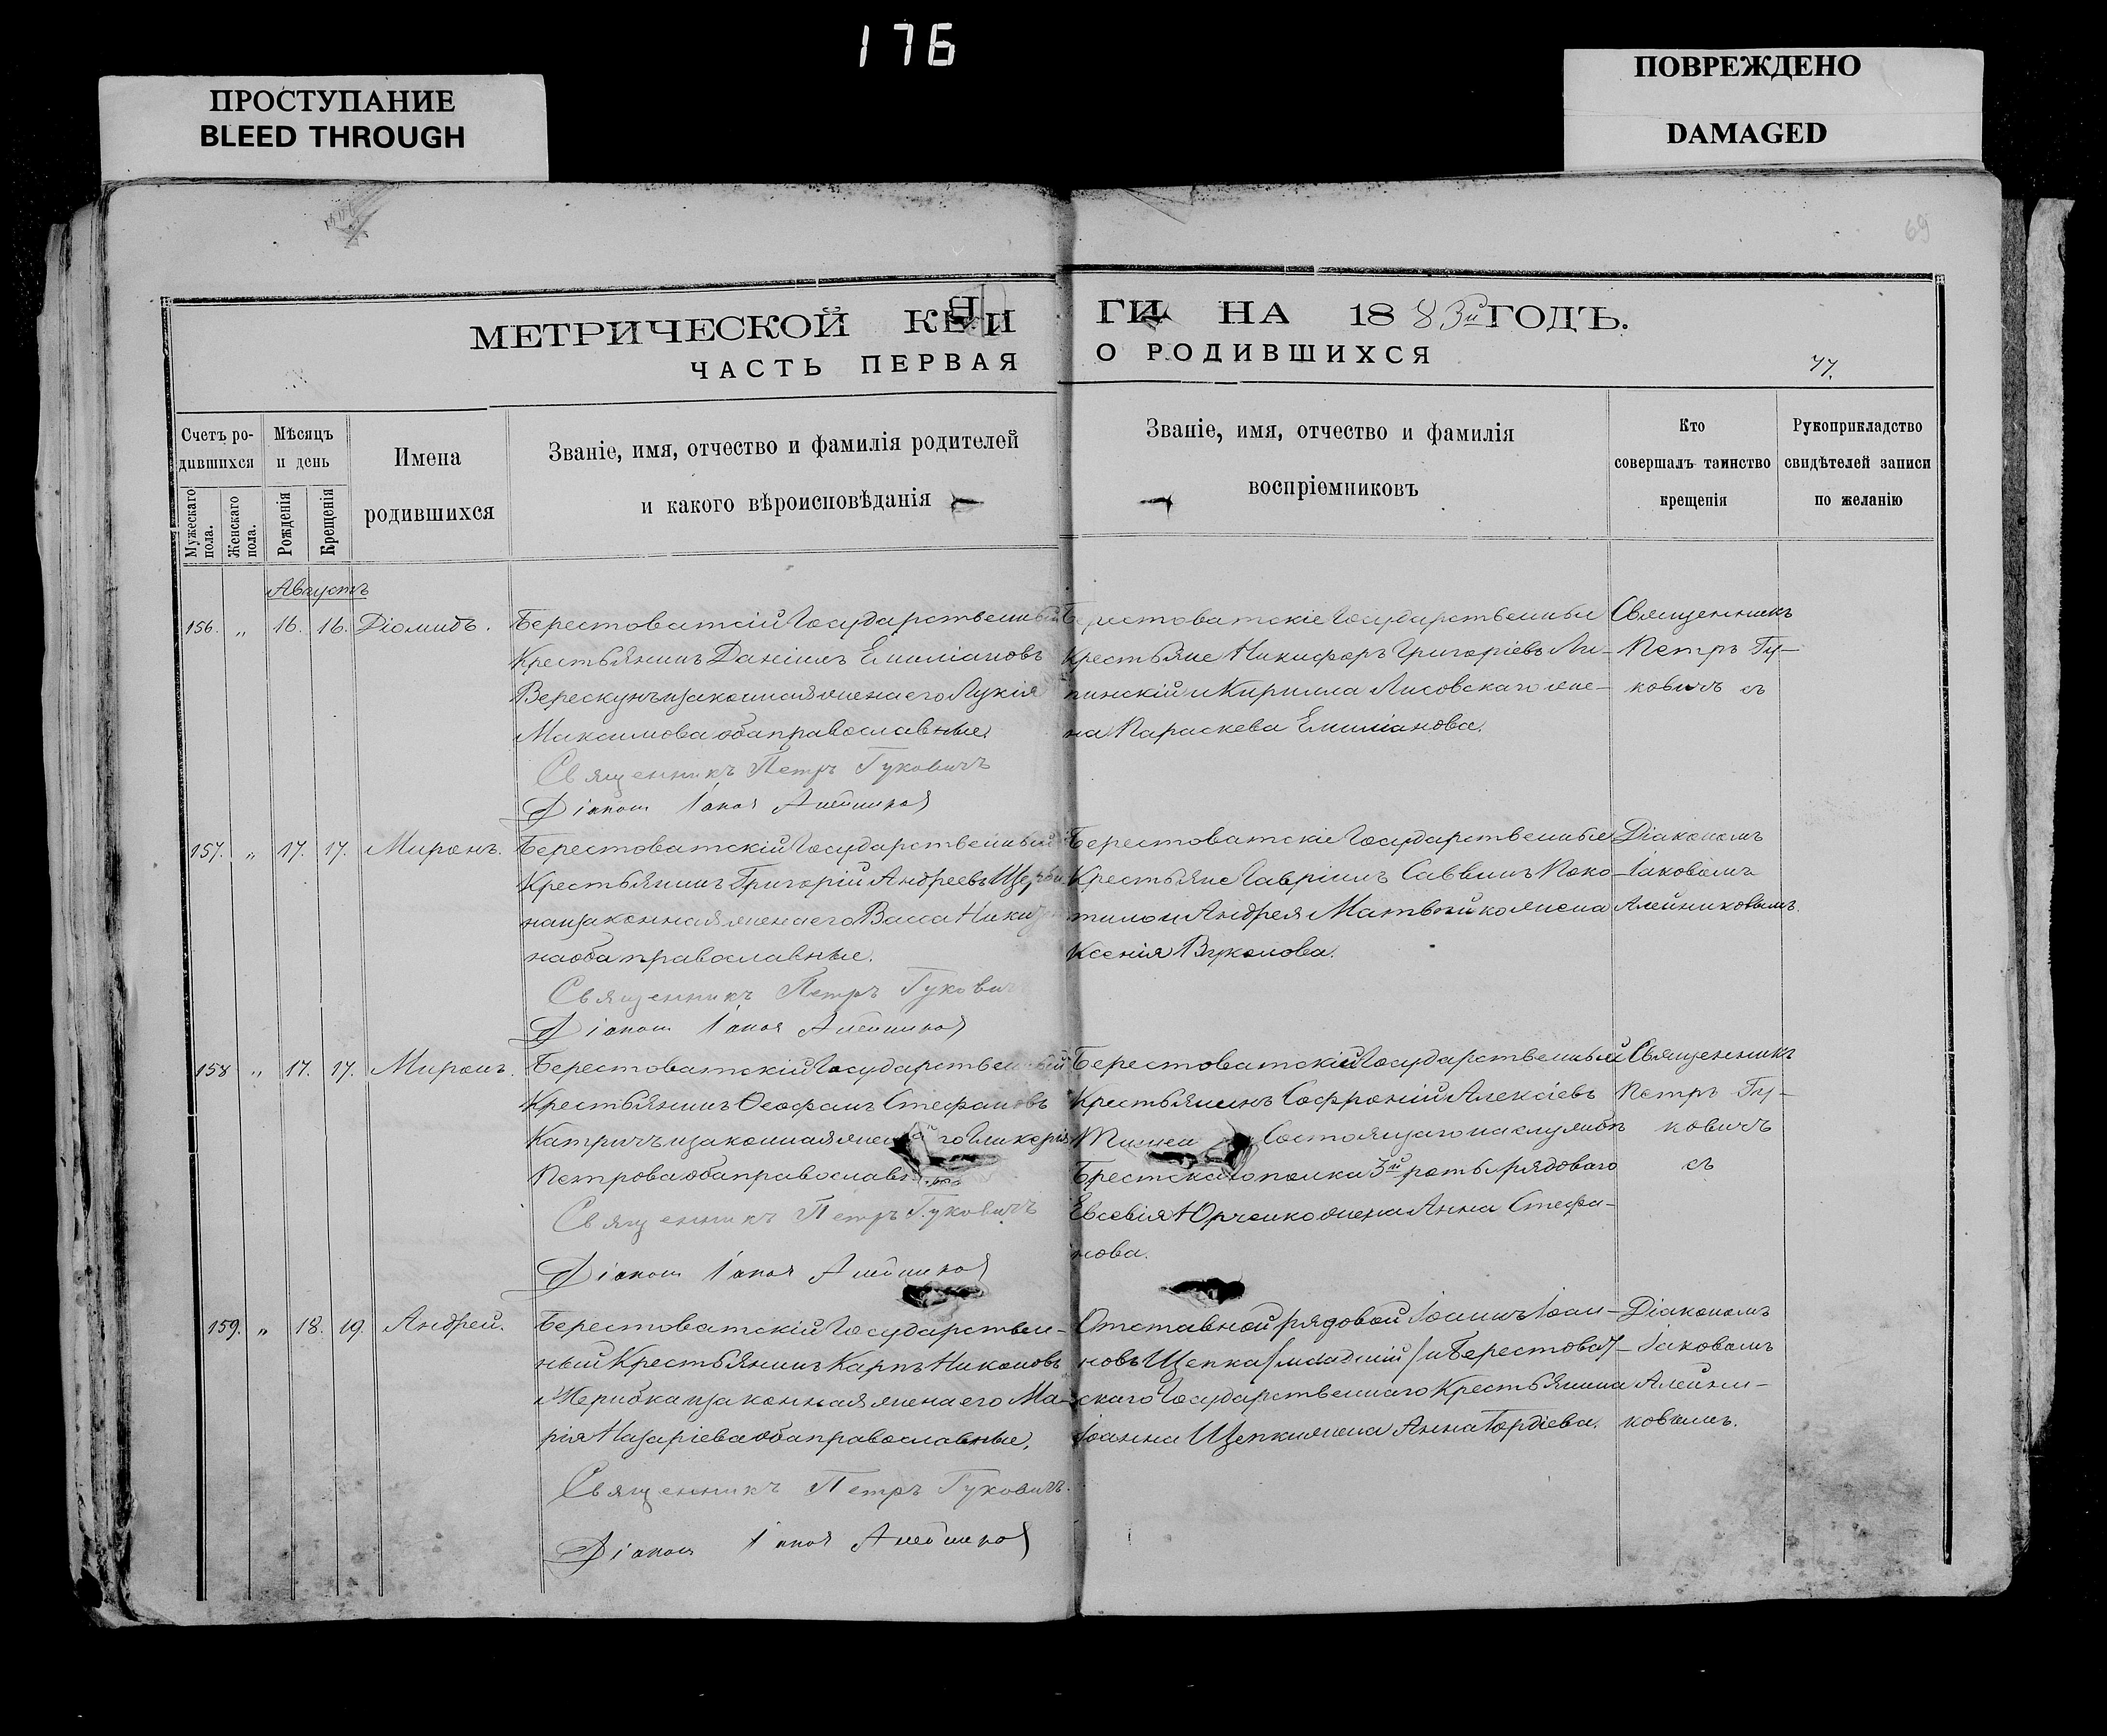 176
ПРОСТУПАНИЕ
BLEED THROUGH
ПОВРЕЖДЕНО
DAMAGED
69
МЕТРИЧЕСКОЙ КНИ
ГИ НА 1883й ГОДЪ.
ЧАСТЬ ПЕРВАЯ
О РОДИВШИХСЯ
77.
Счетъ ро-
дившихся
Мужескаго пола.
Женскаго пола.
Мѣсяцъ
и день
Рожденія
Крещенія
Имена
родившихся
Званіе, имя, отчество и фамилія родителей
и какого вѣроисповѣданія
Званіе, имя, отчество и фамилія
воспріемниковъ
Кто
совершалъ таинство
крещенія
Рукоприкладство
свидѣтелей записи
по желанію
Августъ
156. „ 16. 16. Діомидъ.
Берестоватскій Государственный
Крестьянинъ Даніилъ Емиліановъ
Верескунъ и законная жена его Лукія
Максимова оба православные.
Священникъ Петръ Гуковичъ
Діаконъ Іаковъ Алейниковъ
Берестоватскіе Государственные
Крестьяне Никифоръ Григоріевъ Ли-
пинскій и Кирилла Лисовскаго же-
на Параскева Емиліанова.
Священникъ
Петръ Гу-
ковичъ съ
157. „ 17. 17. Миронъ.
Берестоватскій Государственный
Крестьянинъ Григорій Андреевъ Щерби
на и законная жена его Васса Ники
на оба православные.
Священникъ Петръ Гуковичъ
Діаконъ Іаковъ Алейниковъ
Берестоватскіе Государственные
Крестьяне Гавріилъ Саввинъ Поко-
тило и Андрея Матвѣйко жена
Ксенія Вуколова.
Діакономъ
Іаковомъ
Алейниковымъ.
158 „ 17. 17. Миронъ.
Берестоватскій Государственный
Крестьянинъ Ѳеофанъ Стефановъ
Катричъ и законная жена его Гликерія
Петрова оба православные
Священникъ Петръ Гуковичъ
Діаконъ Іаковъ Алейниковъ
Берестоватскій Государственный
Крестьянинъ Софроній Алексіевъ
Состоящаго на службѣ
Брестскаго полка 3й роты рядоваго
Евсевія Юрченко жена Анна Стефа-
нова.
Священникъ
Петръ Гу-
ковичъ
съ
159. „ 18. 19. Андрей.
Берестоватскій Государствен-
ный Крестьянинъ Карпъ Никоновъ
Жерибка и законная жена его Ма-
рія Назаріева оба православные.
Священникъ Петръ Гуковичъ.
Діаконъ Іаковъ Алейниковъ
Отставной рядовой Іоаннъ Іоан-
новъ Щепка /младшій/ и Берестоват-
скаго Государственнаго Крестьянина
Іоанна Щепки жена Анна Гордіева.
Діакономъ
Іаковомъ
Алейни-
ковымъ.